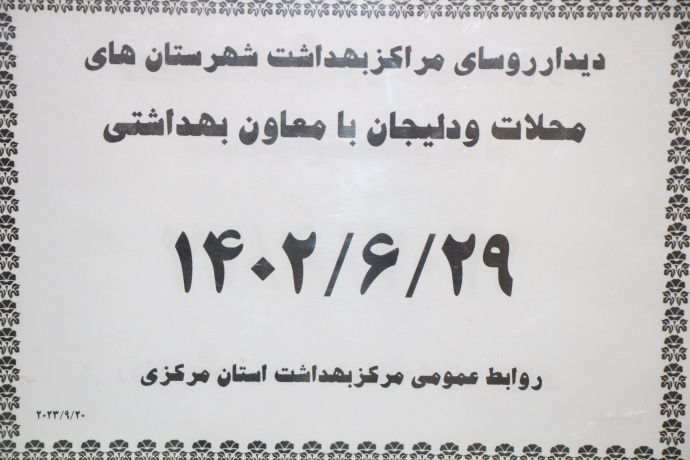 دیدارروسای مراکزبهداشت شهرستان های
محلات ودلیجان با معاون بهداشتی
۱۴۰۲/۶/۲۹
روابط عمومی مرکزبهداشت استان مرکزی
۲۰۲۳/۹/۲۰